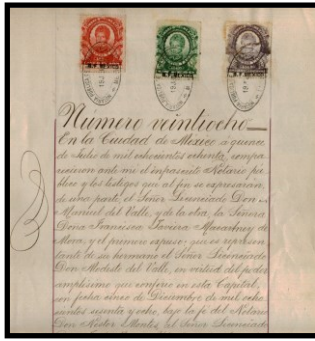 Número veintiocho
En la Ciudad de Mexico á quince
de Julio de mil ochocientos ochenta, compa
recieron ante mi el infrascrito Notario pú
blico y los testigos que al fin se espresarán,
de una parte, el Señor Licenciado Don
Manuel del Valle, y de la otra, la Señora
Doña Francisca Javiera Macartney de
Mora, y el primero espuso: que es represen
tante de su hermano el Señor Licenciado
Don Modesto del Valle, en virtud del poder
amplísimo que confirio en esta Capital,
con fecha cinco de Diciembre de mil ocho
cientos setenta y ocho, bajo la fé del Notario
Don Nestor Montes, el Señor Licenciado